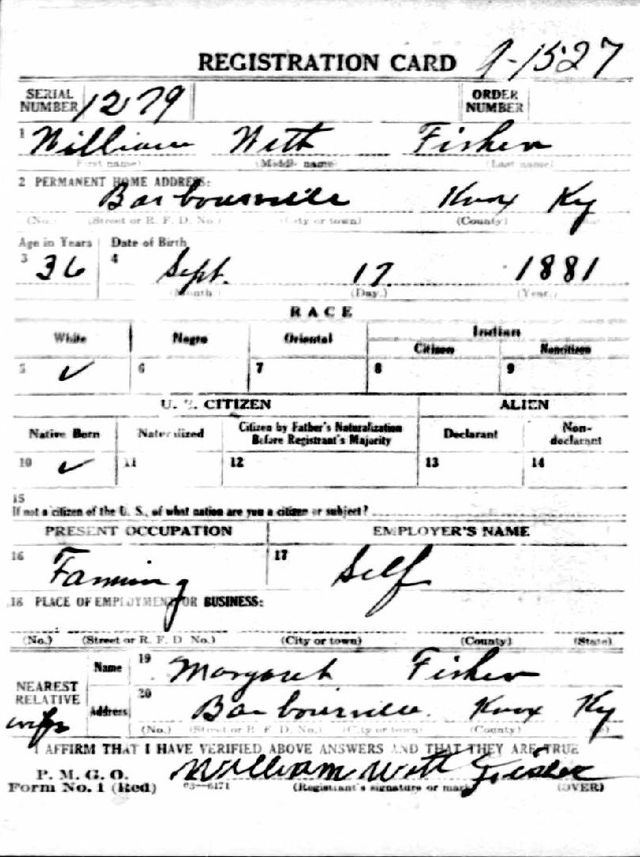 REGISTRATION CARD 9-1527
SERIAL NUMBER 1279 ORDER NUMBER
1 William With Fisher
(First name) (Middle name) (Last name)
2 PERMANENT HOME ADDRESS:
Barbourville Knox Ky
(No.) (Street or R. F. D. No.) (City or town) (County)
Age in Years Date of Birth
3 36 4 Sept. 17 1881
(Month) (Day.) (Year.)
RACE
White Negro Oriental Indian
Citizen Noncitizen
5 ✓ 6 7 8 9
U. S. CITIZEN ALIEN
Native Born Naturalized Citizen by Father's Naturalization Before Registrant's Majority Declarant Non-declarant
10 ✓ 11 12 13 14
15
If not a citizen of the U. S., of what nation are you a citizen or subject?
PRESENT OCCUPATION EMPLOYER'S NAME
16 Farming 17 Self
18 PLACE OF EMPLOYMENT OR BUSINESS:
(No.) (Street or R. F. D. No.) (City or town) (County) (State)
NEAREST RELATIVE Name 19 Margaret Fisher
wife Address 20 Barbourville. Knox Ky
(No.) (Street or R. F. D. No.) (City or town) (County)
I AFFIRM THAT I HAVE VERIFIED ABOVE ANSWERS AND THAT THEY ARE TRUE
P. M. G. O.
Form No. 1 (Red) 03—6171 William With Fisher
(Registrant's signature or mark) (OVER)